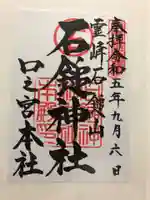 奉拝令和五年九月六日
霊峰石鎚山
石鎚神社
口之宮本社